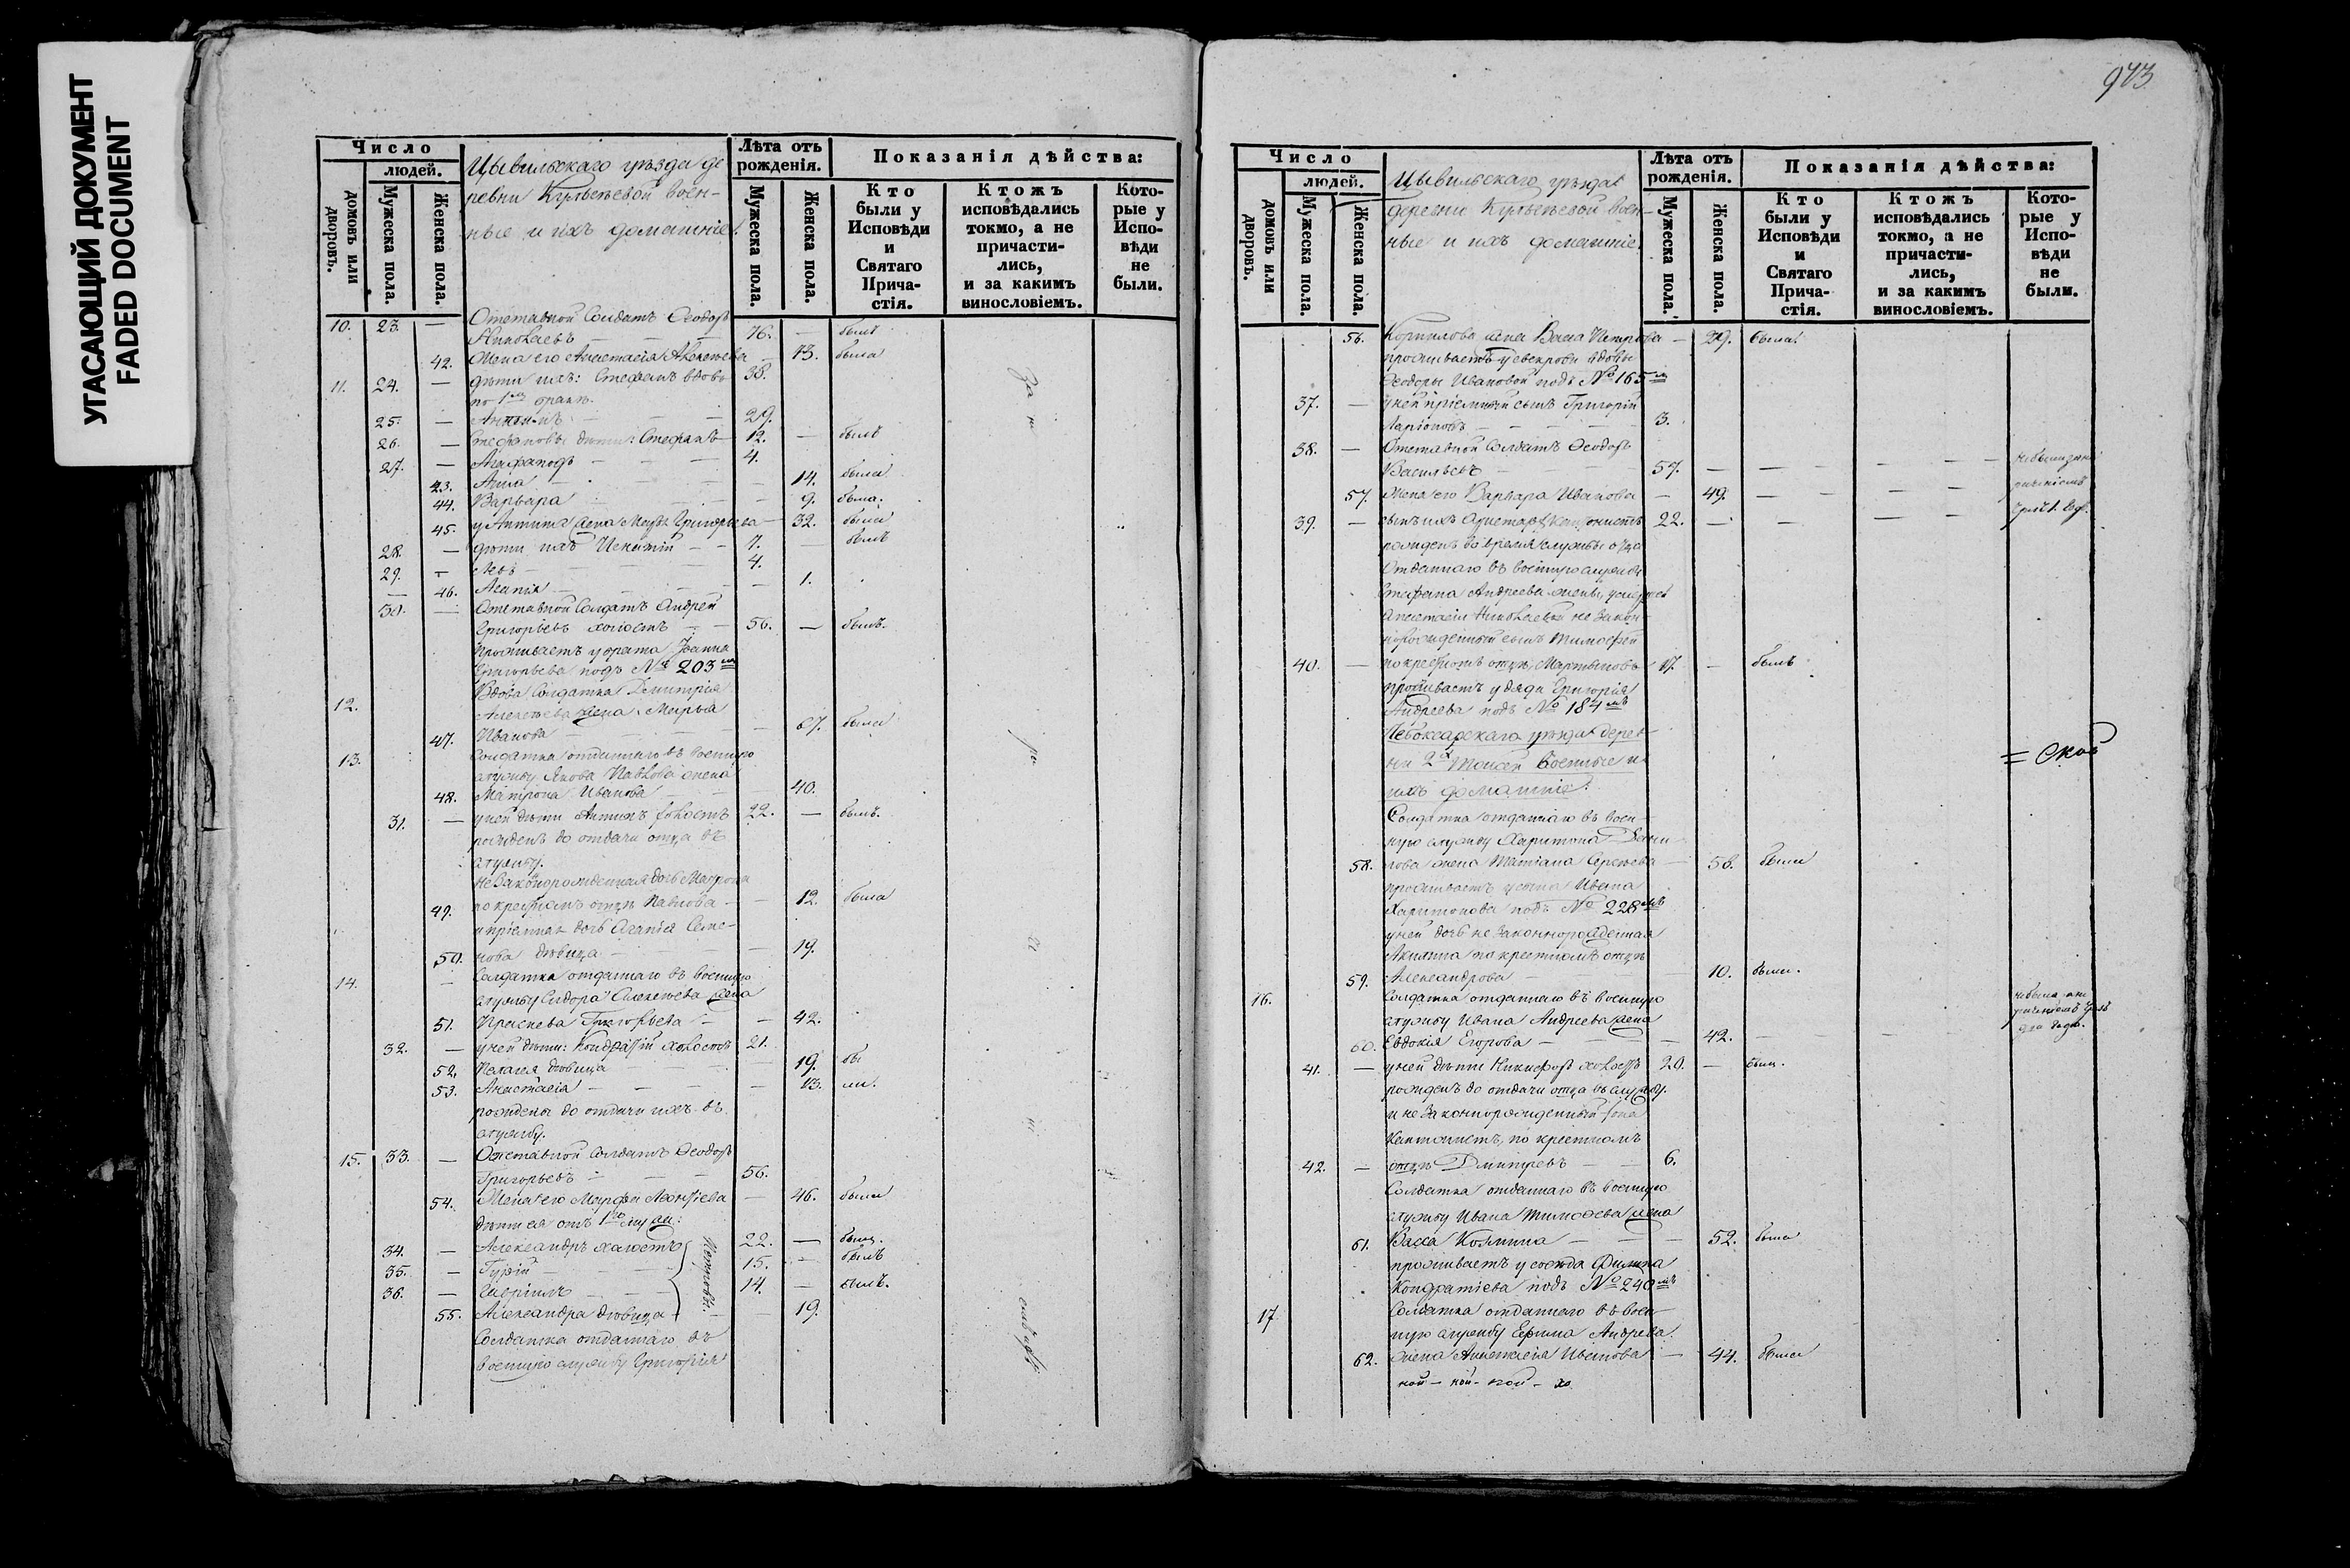 УГАСАЮЩИЙ ДОКУМЕНТ
FADED DOCUMENT
Число
людей.
домовъ или дворовъ.
Мужеска пола.
Женска пола.
Цывильскаго уѣзда де-
ревни Кульгешевой воен-
ные и ихъ домашніе.
Лѣта отъ рожденія.
Мужеска пола.
Женска пола.
Показанія дѣйства:
Кто были у Исповѣди и Святаго Прича-стія.
Ктожъ исповѣдались токмо, а не причасти-лись, и за какимъ винословіемъ.
Кото-рые у Испо-вѣди не были.
10. 23. — Отставной Солдатъ Ѳеодоръ
Николаевъ — 76. — былъ
42. Жена его Анастасія Алексѣева — 73. была
11. 24. — дѣти ихъ: Стефанъ вдовъ 38.
по 1мъ бракѣ.
25. — Антипъ — 29.
26. — Стефановы дѣти: Стефанъ 12. — былъ
27. — Агафаподъ — 4.
43. Анна — 14. была
44. Варвара — 9. была.
45. у Антипа жена Григорьева — 32. была
28. — дѣти ихъ Игнатій — 7. былъ
29. — Левъ — 4.
46. Агапія — 1.
30. — Отставной Солдатъ Андрей
Григорьевъ холостъ — 56. — былъ.
проживаетъ у брата Іоанна
Григорьева подъ № 203мъ
12. Вдова Солдатка Димитрія
Алексѣева жена Марья
47. Иванова — 67. была
13. Солдатка отданнаго въ военную
службу Якова Павлова жена
48. Матрона Иванова — 40.
31. — у ней дѣти Антипъ холостъ 22. — былъ.
рожденъ до отдачи отца въ
службу.
незаконорожденная дочь Матрона
49. по крестномъ отцѣ Павлова — 12. была
и пріемная дочь Агапія Семе-
50. нова дѣвица — 19.
14. Солдатка отданнаго въ военную
службу Сидора Алексѣева жена
51. Григорьева — 42.
32. — у ней дѣти: Кондратій холостъ 21.
52. Пелагея дѣвица — 19. бы
53. Анастасія — 13. ли.
рождены до отдачи ихъ въ
службу.
15. 33. — Отставной Солдатъ Ѳеодоръ
Григорьевъ — 56.
54. Жена его Марфа Леонтіева — 46. была
дѣти ея отъ 1го мужа:
34. — Александръ холостъ 22. — былъ.
35. — Гурій — 15. — былъ
36. — Гавріилъ — 14. — былъ.
55. Александра дѣвица — 19.
Солдатка отданнаго въ
военную службу Григорія
973
Число
людей.
домовъ или дворовъ.
Мужеска пола.
Женска пола.
Цывильскаго уѣзда
деревни Кульгешевой воен-
ные и ихъ домашніе.
Лѣта отъ рожденія.
Мужеска пола.
Женска пола.
Показанія дѣйства:
Кто были у Исповѣди и Святаго Прича-стія.
Ктожъ исповѣдались токмо, а не причасти-лись, и за какимъ винословіемъ.
Кото-рые у Испо-вѣди не были.
56. Корнилова жена Васса Петрова — 29. была
проживаетъ у свекрови вдовы
Ѳеодоры Ивановой подъ № 165мъ
37. — у ней пріемный сынъ Григорій
Ларіоновъ — 3.
38. — Отставной Солдатъ Ѳеодоръ
Васильевъ — 57. —
57. Жена его Варвара Иванова — 49. —
39. — сынъ ихъ Аристархъ кантонистъ 22. —
рожденъ во время службы отца
Отданнаго въ военную службу
Стефана Андреева жены
Анастасіи Николаевой не закон-
норожденный сынъ Тимофей
40. — по крестномъ отцѣ Мартыновъ 17. — былъ
проживаетъ у дяди Григорія
Андреева подъ № 184мъ
Чебоксарскаго уѣзда дерев-
ни 2х Военные и
ихъ домашніе:
Солдатка отданнаго въ воен-
ную службу Харитона
58. жена Татіана Сергѣева — 56. была
проживаетъ у сына Ивана
Харитонова подъ № 228мъ
у ней дочь не законнорожденная
Акилина по крестномъ отцѣ
59. Александрова — 10. была.
16. Солдатка отданнаго въ военную
службу Ивана Андреева жена
60. Евдокія Егорова — 42. —
41. — у ней дѣти Никифоръ холостъ 20. — былъ.
рожденъ до отдачи отца въ службу.
и не законнорожденный
Кантонистъ, по крестномъ
42. — отцѣ Дмитревъ — 6.
Солдатка отданнаго въ военную
службу Ивана Тимофеева жена
61. Васса Козмина — 52. была
проживаетъ у сосѣда Филипа
Кондратіева подъ № 240мъ
17 Солдатка отданнаго въ воен-
ную службу Ефима Андреева
62. жена Анастасія Иванова — 44. была